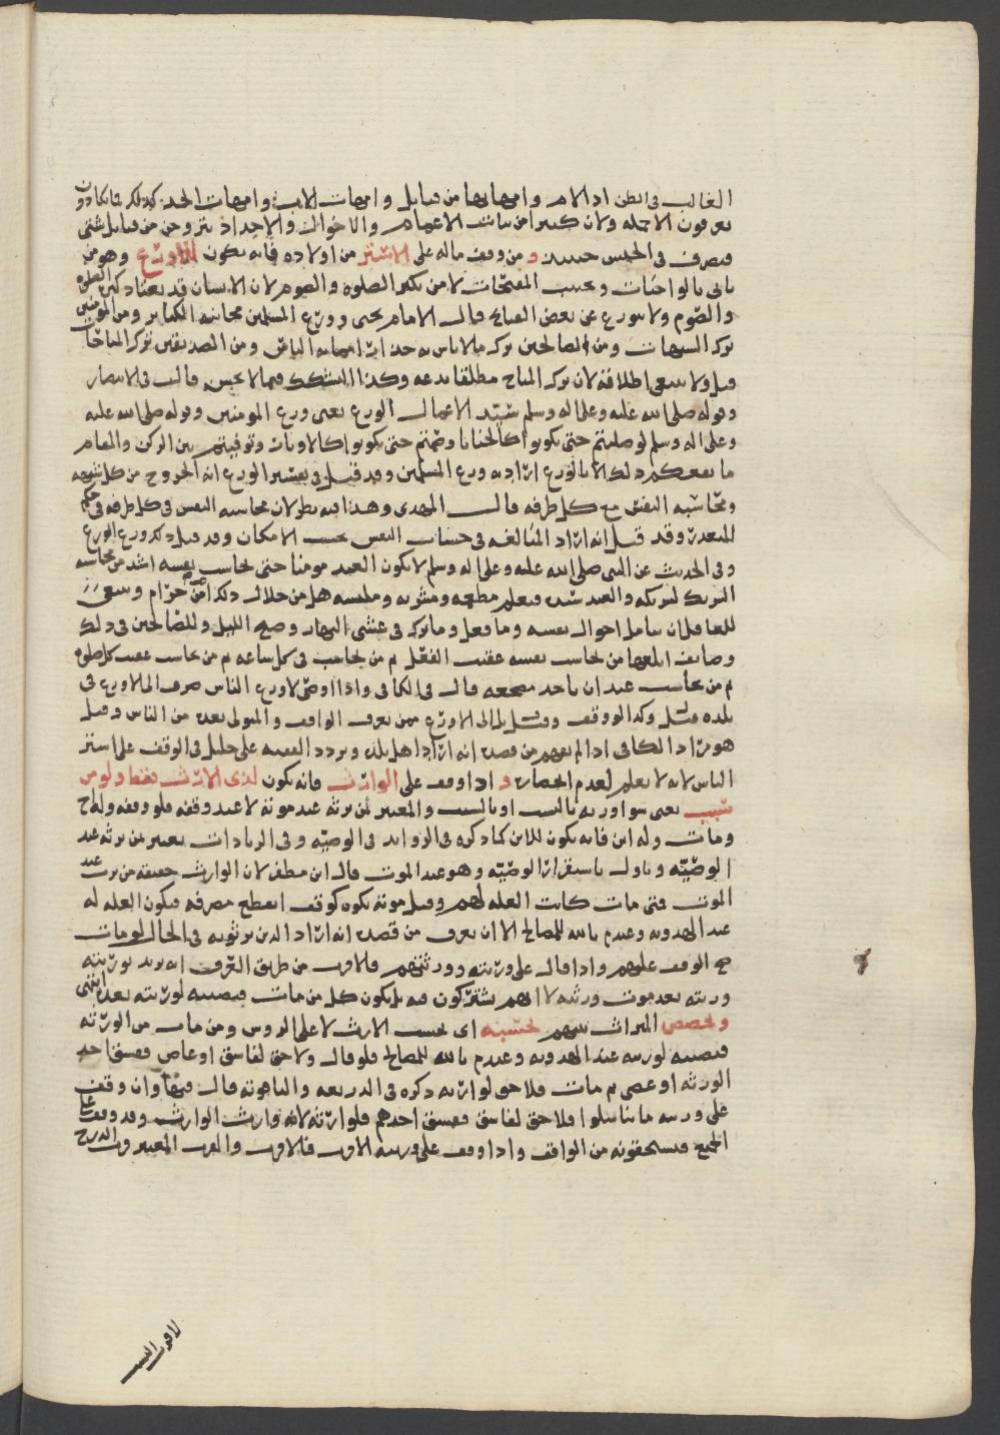 الغالب في البطن اذ الام وامهاتها من قبايل وامهات الاب وامهات الجد كذلك ما يكادون
يعرفون الا جمله ولان كثيرا من بنات الاعمام والاخوال والاجداد يتزوجن من قبايل شتى
فيصرف في الجنس حينئذ و من وقف ماله على الاستر من اولاده فانه يكون للاورع وهو من
ياتي بالواجبات ويجتنب المقبحات لا من يكثر الصلوة والصوم لان الانسان قد يعتاد كثرة الصلوة
والصوم ولا يتورع عن بعض القبايح قال الامام يحيى وورع المسلمين مجانبة الكباير ومن المومنين
ترك الشبهات ومن الصالحين ترك ما لا باس به حذرا مما به الباس ومن الصديقين ترك المباحات
قيل ولا ينبغي اطلاقه لان ترك المباح مطلقا بدعه وكذا التشكك فيما لا يحسن قال في الانتصار
وقوله صلى الله عليه وعلى اله وسلم سيد الاعمال الورع يعني ورع المومنين وقوله صلى الله عليه
وعلى اله وسلم لو صليتم حتى تكونوا كالحنايا وصمتم حتى تكونوا كالاوتار وتوفيتم بين الركن والمقام
ما نفعكم ذلك الا بالورع اراد به ورع المسلمين وقد قيل في تفسير الورع انه الخروج من كل شبهه
ومحاسبه النفس مع كل طرفه قال المهدي وهذا فيه نظر لان محاسبه النفس في كل طرفه في حكم
المتعذر وقد قيل انه اراد المبالغه في حساب النفس بحسب الامكان وقد قيل ذلك ورع الورع
وفي الحديث عن النبي صلى الله عليه وعلى اله وسلم لا يكون العبد مومنا حتى يحاسب نفسه اشد من محاسبه
الشريك لشريكه والعبد سيده فيعلم مطعمه ومشربه وملبسه هل من حلال ذلك ام من حرام وينبغي
للعاقل ان يتامل احوال نفسه وما فعل وما ترك في عشي النهار وصبح الليل وللصالحين في ذلك
وظايف ابلغها من يحاسب نفسه عقيب الفعل ثم من يحاسب في كل ساعه ثم من يحاسب عقيب كل صلوه
ثم من يحاسب عند ان ياخذ مضجعه قال في الكافي واذا اوصى لاورع الناس صرف الى الاورع في
بلده قيل وكذا الوقف وقيل بل الى الاورع ممن يعرف الواقف والمتولي بعده من الناس وقيل
هو مراد الكافي اذا لم يفهم من قصده انه اراد اهل بلده وتردد الفقيه علي خليل في الوقف على استر
الناس لانه لا يعلم لعدم انحصارهم و اذا وقف على الوارث فانه يكون لذي الارث فقط ولو من
سبب يعني سوا ورثه بالنسب او بالسبب والمعتبر لمن يرثه عند موته لا عند وقفه فلو وقفه وله اخ
ومات وله ابن فانه يكون للابن كما ذكره في الزوايد في الوصيه وفي الزيادات يعتبر من يرثه عند
الوصيه وتاول باستقرار الوصيه وهو عند الموت قال ابن مظفر لان الوارث حقيقه من يرث عند
الموت فمتى مات كانت الغله لهم وقبل موته يكون كوقف انقطع مصرفه فيكون الغله له
عند الهدويه وعندم بالله للمصالح الا ان يعرف من قصده انه اراد الذين يرثونه في الحال لو مات
صح الوقف عليهم واذا قال على ورثته وورثتهم فالاقرب من طريق العرف انه يريد بورثته
ورثته بعد موت ورثته لا انهم يشتركون فيه بل يكون كل من مات فنصيبه لورثته بعده انتهى
و يحصص الميراث بينهم بحسبه اي بحسب الارث لا على الروس ومن مات من الورثه
فنصيبه لورثته عند الهدويه وعندم بالله للمصالح فلو قال ولا حق لفاسق او عاص ففسق احد
الورثه او عصى ثم مات فلا حق لوارثه ذكره في الذريعه والباهوته قال فيها وان وقف
على ورثته ما تناسلوا فلا حق لفاسق ففسق احدهم فلوارثه لانه وارث الوارث وقد وقف على
الجميع فيستحقونه من الواقف واذا وقف على ورثته الاقرب فالاقرب والقرب المعتبر قرب الدرج
لا قرب النسب